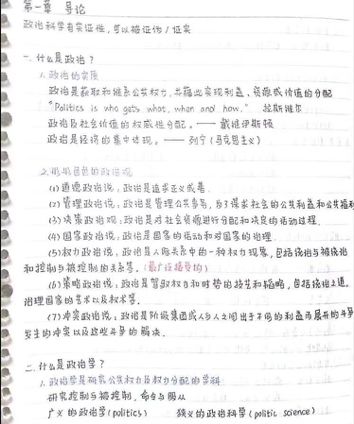 第一章 导论
政治科学有实证性，可以被证伪/证实
一. 什么是政治？
1. 政治的实质
政治是获取和维系公共权力，并藉此实现利益、资源或价值的分配
“Politics is who gets what, when and how.” 拉斯维尔
政治是社会价值的权威性分配。—— 戴维伊斯顿
政治是经济的集中体现。—— 列宁（马克思主义）
2. 形形色色的政治观
(1) 道德政治说：政治是追求正义或善.
(2) 管理政治说：政治是管理公共事务，为了谋求社会的公共利益和公共福利
(3) 决策政治观：政治是对社会资源进行分配和决定的活动过程.
(4) 国家政治说：政治是国家的活动和对国家的治理.
(5) 权力政治说：政治是人际关系中的一种权力现象，包括统治与被统治
和控制与被控制的关系等.（最广泛接受的）
(6) 策略政治说：政治是管取权力和时势的技艺和韬略，包括统治之道.
治理国家的学术以及权术等.
(7) 冲突政治说：政治是阶级集团或人与人之间出于不同的利益而展开的斗争
发生的冲突以及这些斗争的解决.
二. 什么是政治学？
1. 政治学是研究公共权力及权力分配的学科
研究控制与被控制，命令与服从
广义的政治学(politics) 狭义的政治科学(politic science)